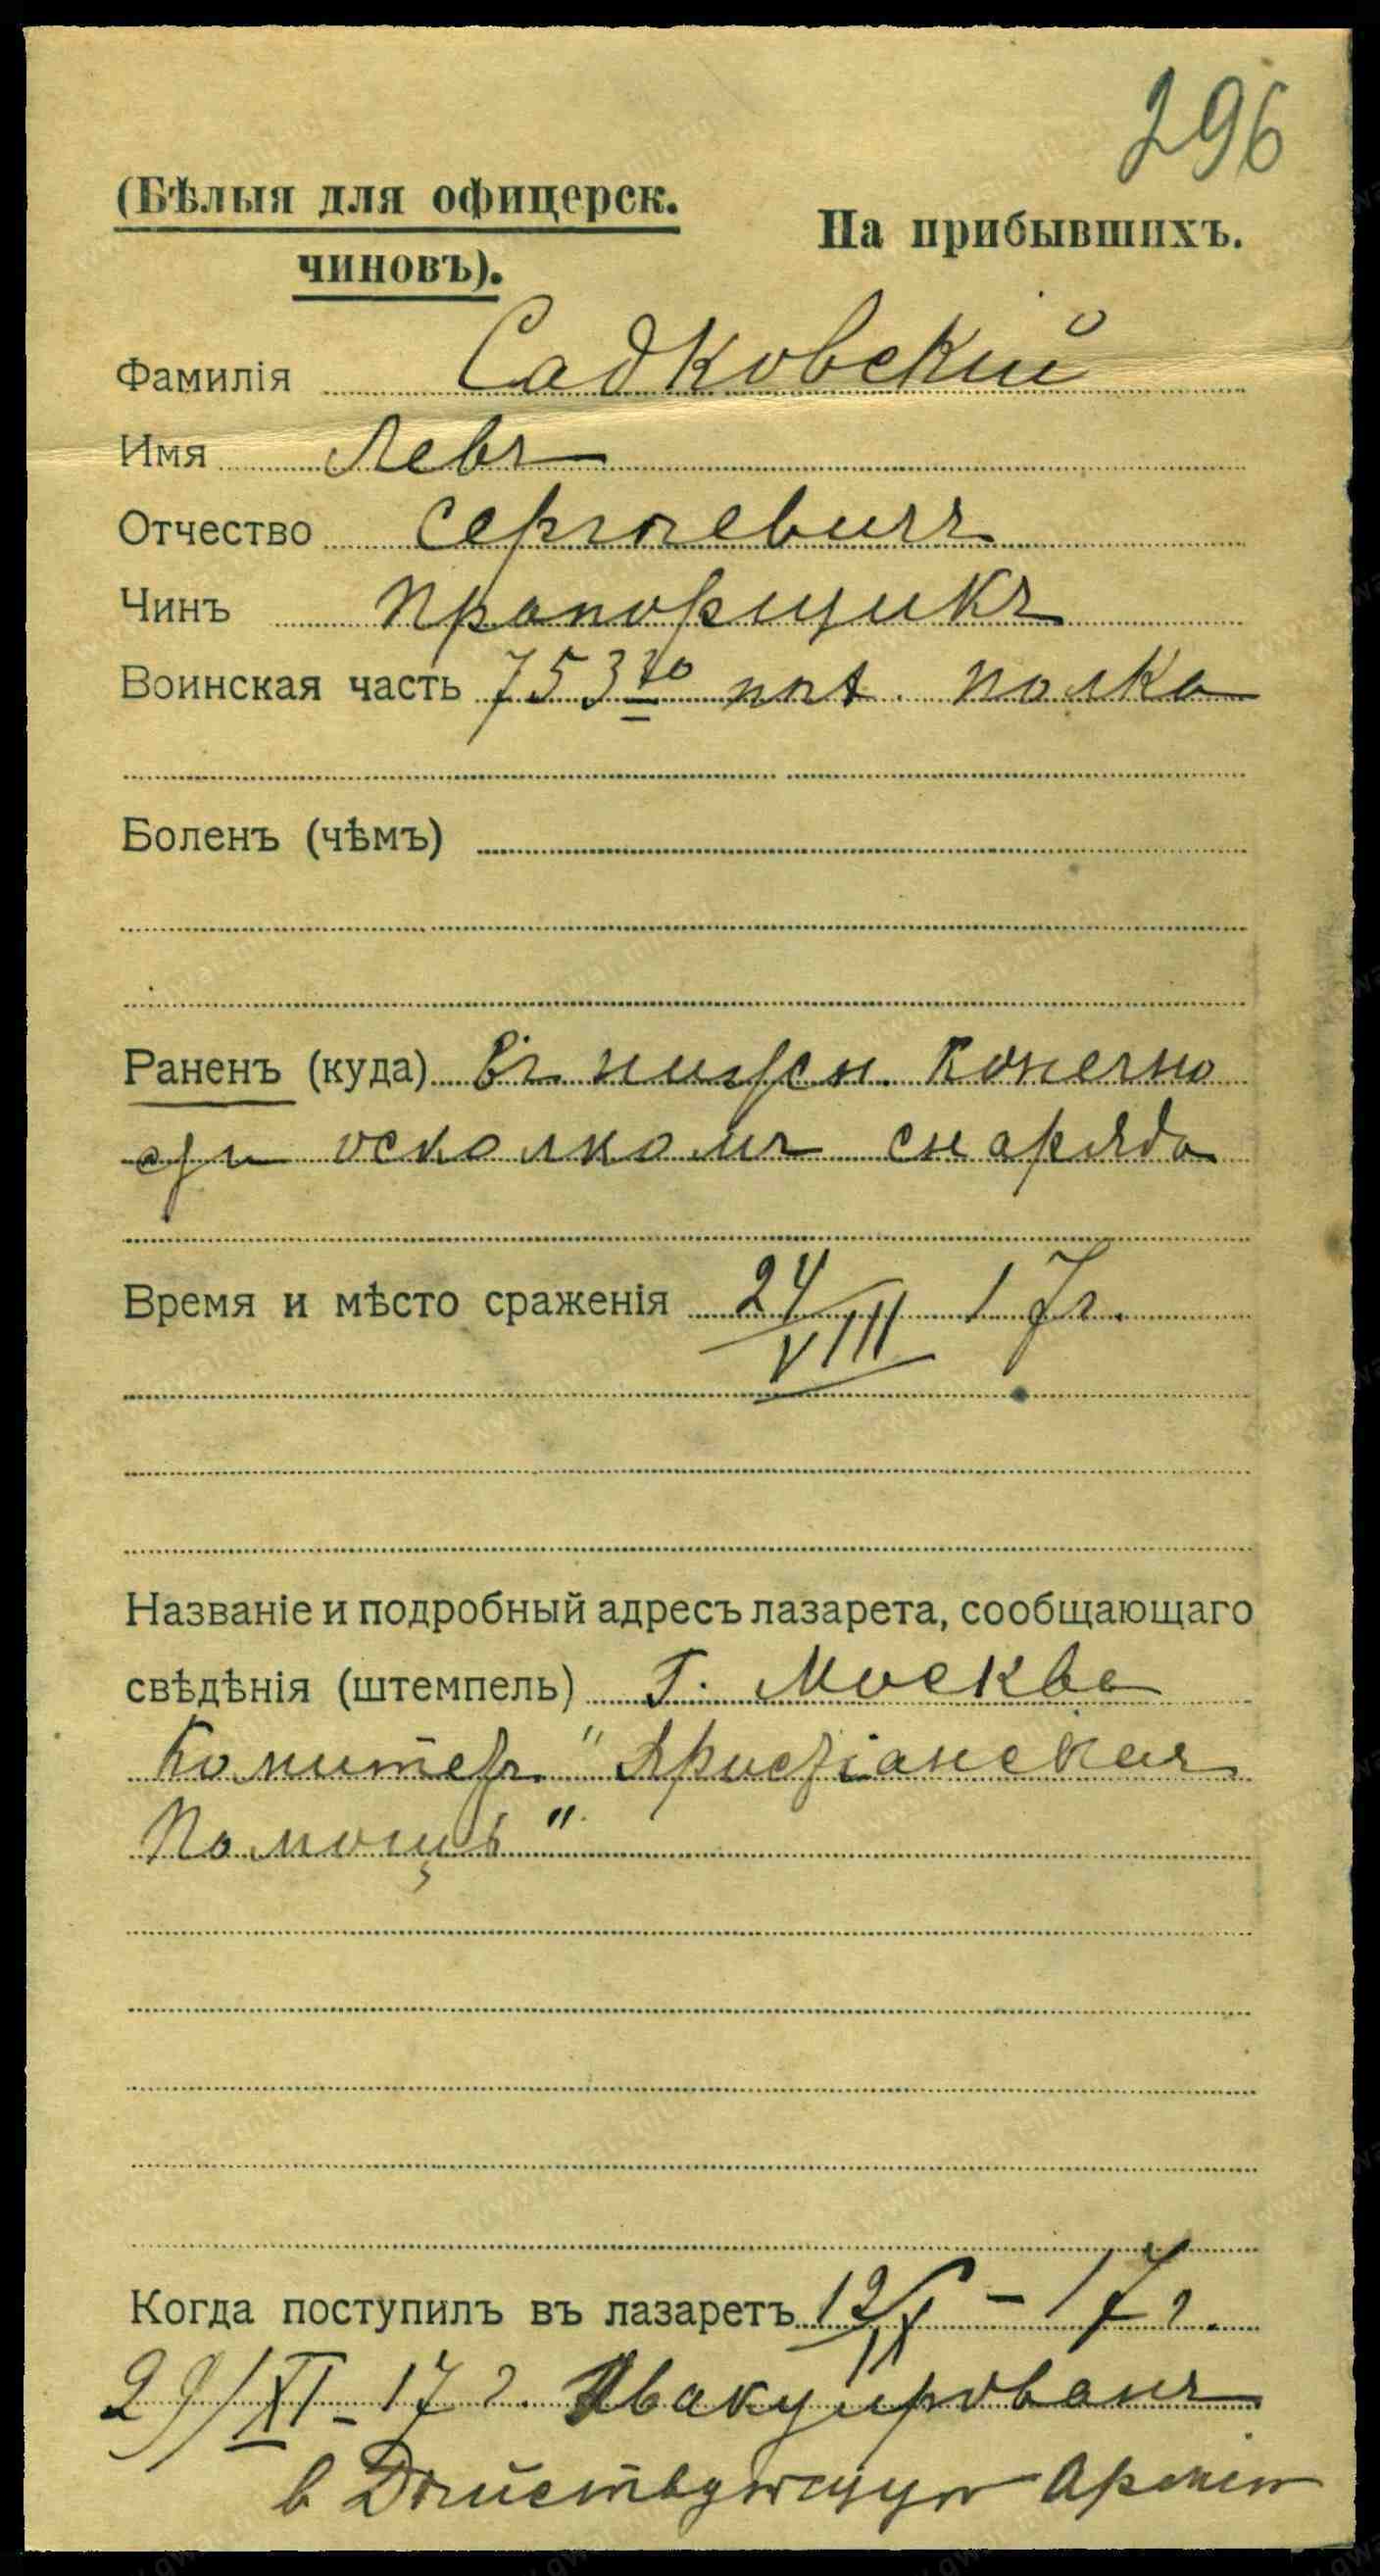 296
(Бѣлыя для офицерск.
чиновъ).
На прибывшихъ.
Фамилія Садковскій
Имя Левъ
Отчество Сергѣевичъ
Чинъ Прапорщикъ
Воинская часть 753го пѣх. полка
Боленъ (чѣмъ)
Раненъ (куда) въ нижн. конечно
сти осколкомъ снаряда
Время и мѣсто сраженія 24/VIII 17г.
Названіе и подробный адресъ лазарета, сообщающаго
свѣдѣнія (штемпель) Г. Москва
Комитетъ "Христіанская
Помощь"
Когда поступилъ въ лазаретъ 12/IX – 17г.
29/XI – 17 г. Эвакуированъ
в Дѣйствующую Армію